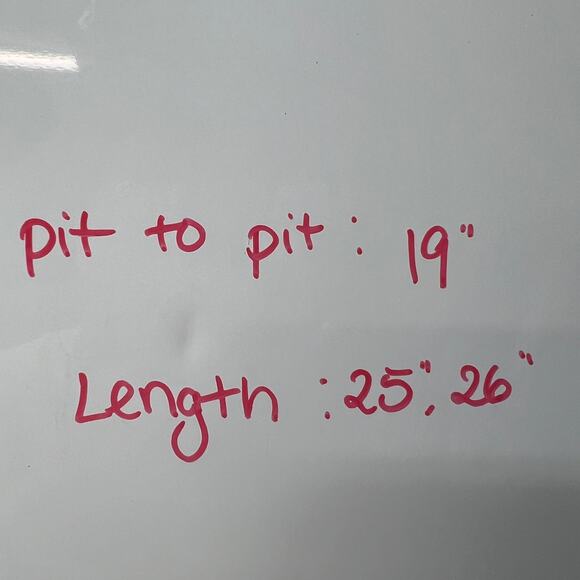 pit to pit : 19"
Length : 25", 26"